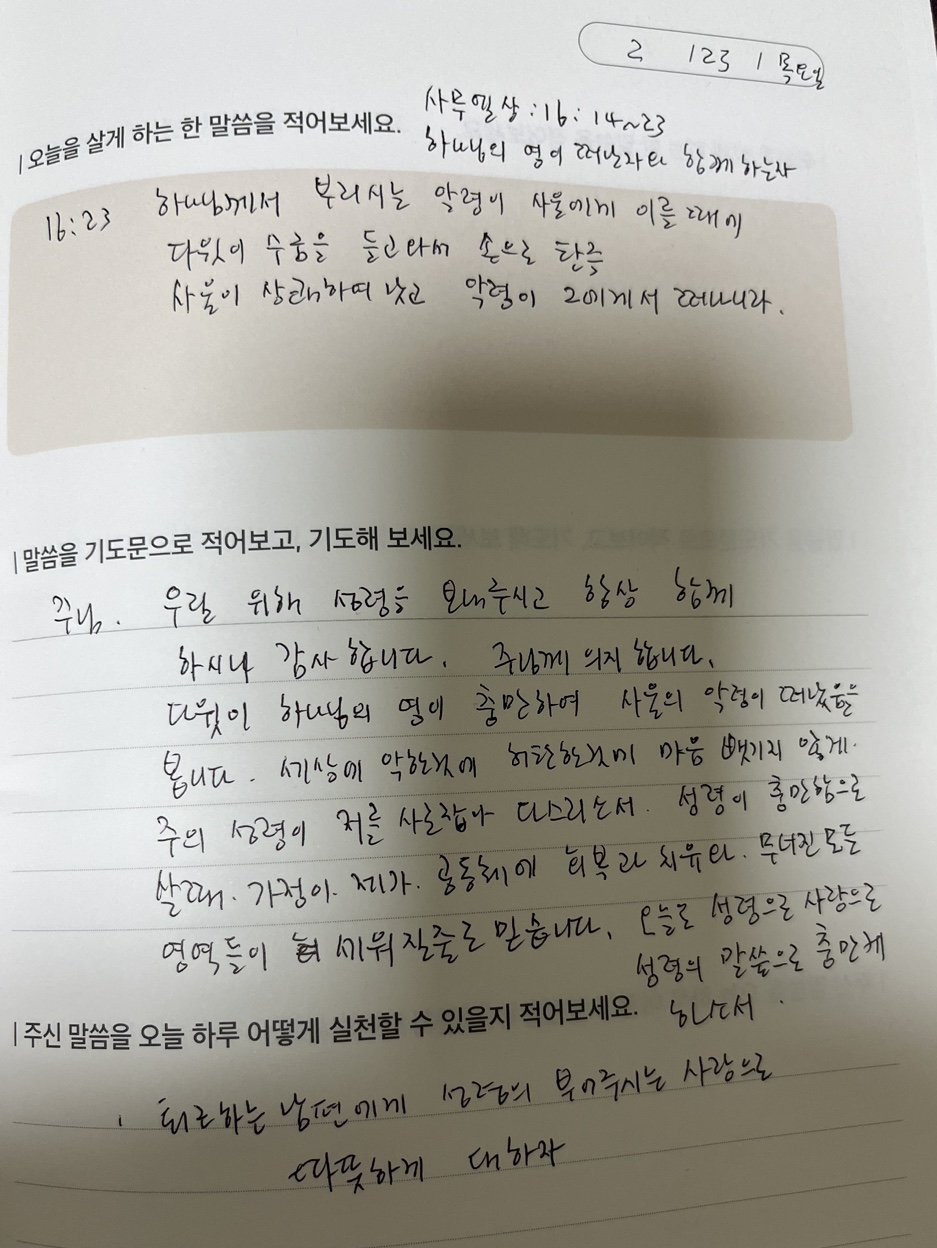 2 / 23 / 목요일
오늘을 살게 하는 한 말씀을 적어보세요.
사무엘상:16: 14~23
하나님의 영이 떠난자와 함께하는자
16:23 하나님께서 부리시는 악령이 사울에게 이를 때에
다윗이 수금을 들고와서 손으로 탄즉
사울이 상쾌하여 낫고 악령이 그에게서 떠나니라.
말씀을 기도문으로 적어보고, 기도해 보세요.
주님. 우릴 위해 성령을 보내주시고 항상 함께
하시니 감사 합니다. 주님께 의지 합니다.
다윗이 하나님의 영이 충만하여 사울의 악령이 떠났음을
봅니다. 세상에 악한것에 허탄한것에 마음 뺏기지 않게.
주의 성령이 저를 사로잡아 다스리소서. 성령이 충만함으로
살때. 가정이. 제가. 공동체에 회복과 치유와. 무너진 모든
영역들이 세워질줄로 믿습니다. 오늘도 성령으로 사랑으로
성령의 말씀으로 충만케
하소서.
주신 말씀을 오늘 하루 어떻게 실천할 수 있을지 적어보세요.
퇴근하는 남편에게 성령의 부어주시는 사랑으로
따뜻하게 대하자